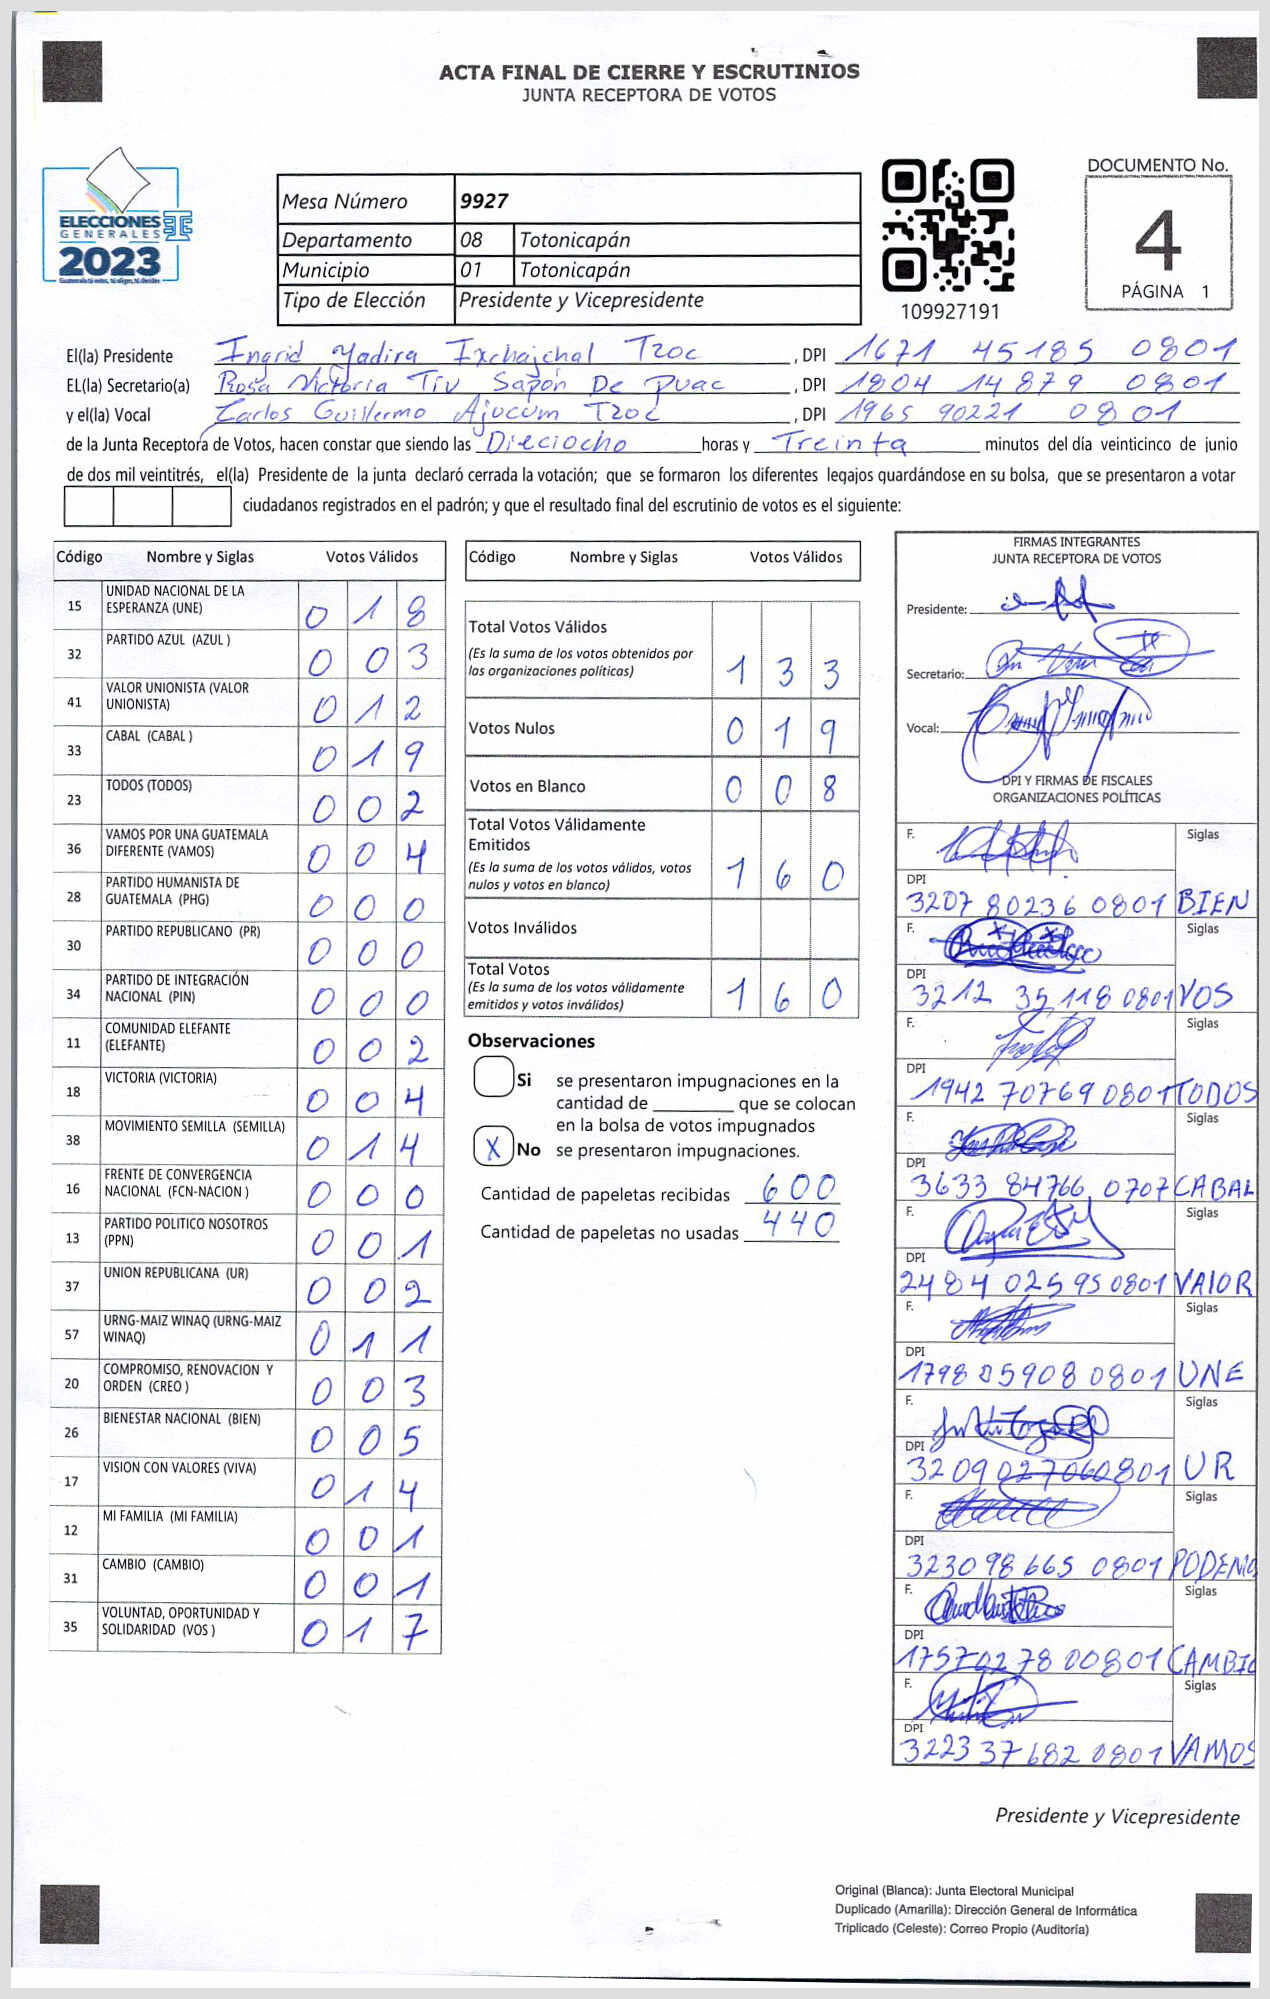 ACTA FINAL DE CIERRE Y ESCRUTINIOS
JUNTA RECEPTORA DE VOTOS
ELECCIONES
GENERALES
2023
Mesa Número 9927
Departamento 08 Totonicapán
Municipio 01 Totonicapán
Tipo de Elección Presidente y Vicepresidente
109927191
DOCUMENTO No.
4
PÁGINA 1
El(la) Presidente Ingrid Yadira Ixchajchal Tzoc , DPI 1671 45185 0801
EL(la) Secretario(a) Rosa Victoria Tiu Sapón De Puac , DPI 1804 14879 0801
y el(la) Vocal Carlos Guillermo Ajucum Tzoc , DPI 1965 90221 0801
de la Junta Receptora de Votos, hacen constar que siendo las Dieciocho horas y Treinta minutos del día veinticinco de junio
de dos mil veintitrés, el(la) Presidente de la junta declaró cerrada la votación; que se formaron los diferentes legajos guardándose en su bolsa, que se presentaron a votar
ciudadanos registrados en el padrón; y que el resultado final del escrutinio de votos es el siguiente:
Código Nombre y Siglas Votos Válidos
15 UNIDAD NACIONAL DE LA
ESPERANZA (UNE) 0 1 8
32 PARTIDO AZUL (AZUL ) 0 0 3
41 VALOR UNIONISTA (VALOR
UNIONISTA) 0 1 2
33 CABAL (CABAL ) 0 1 9
23 TODOS (TODOS) 0 0 2
36 VAMOS POR UNA GUATEMALA
DIFERENTE (VAMOS) 0 0 4
28 PARTIDO HUMANISTA DE
GUATEMALA (PHG) 0 0 0
30 PARTIDO REPUBLICANO (PR) 0 0 0
34 PARTIDO DE INTEGRACIÓN
NACIONAL (PIN) 0 0 0
11 COMUNIDAD ELEFANTE
(ELEFANTE) 0 0 2
18 VICTORIA (VICTORIA) 0 0 4
38 MOVIMIENTO SEMILLA (SEMILLA) 0 1 4
16 FRENTE DE CONVERGENCIA
NACIONAL (FCN-NACION ) 0 0 0
13 PARTIDO POLITICO NOSOTROS
(PPN) 0 0 1
37 UNION REPUBLICANA (UR) 0 0 2
57 URNG-MAIZ WINAQ (URNG-MAIZ
WINAQ) 0 1 1
20 COMPROMISO, RENOVACION Y
ORDEN (CREO ) 0 0 3
26 BIENESTAR NACIONAL (BIEN) 0 0 5
17 VISION CON VALORES (VIVA) 0 1 4
12 MI FAMILIA (MI FAMILIA) 0 0 1
31 CAMBIO (CAMBIO) 0 0 1
35 VOLUNTAD, OPORTUNIDAD Y
SOLIDARIDAD (VOS ) 0 1 7
Código Nombre y Siglas Votos Válidos
Total Votos Válidos
(Es la suma de los votos obtenidos por
las organizaciones políticas) 1 3 3
Votos Nulos 0 1 9
Votos en Blanco 0 0 8
Total Votos Válidamente
Emitidos
(Es la suma de los votos válidos, votos
nulos y votos en blanco) 1 6 0
Votos Inválidos
Total Votos
(Es la suma de los votos válidamente
emitidos y votos inválidos) 1 6 0
Observaciones
Si se presentaron impugnaciones en la
cantidad de ________ que se colocan
en la bolsa de votos impugnados
X No se presentaron impugnaciones.
Cantidad de papeletas recibidas 600
Cantidad de papeletas no usadas 440
FIRMAS INTEGRANTES
JUNTA RECEPTORA DE VOTOS
Presidente:
Secretario:
Vocal:
DPI Y FIRMAS DE FISCALES
ORGANIZACIONES POLÍTICAS
F. Siglas
DPI
3207 80236 0801 BIEN
F. Siglas
DPI
3212 35118 0801 VOS
F. Siglas
DPI
1942 70769 0801 TODOS
F. Siglas
DPI
3633 84766 0707 CABAL
F. Siglas
DPI
2484 02595 0801 VALOR
F. Siglas
DPI
1798 05908 0801 UNE
F. Siglas
DPI
3209 02706 0801 UR
F. Siglas
DPI
3230 98665 0801 PODEMO
F. Siglas
DPI
1757 02780 0801 CAMBIO
F. Siglas
DPI
3223 37682 0801 VAMOS
Presidente y Vicepresidente
Original (Blanca): Junta Electoral Municipal
Duplicado (Amarilla): Dirección General de Informática
Triplicado (Celeste): Correo Propio (Auditoría)